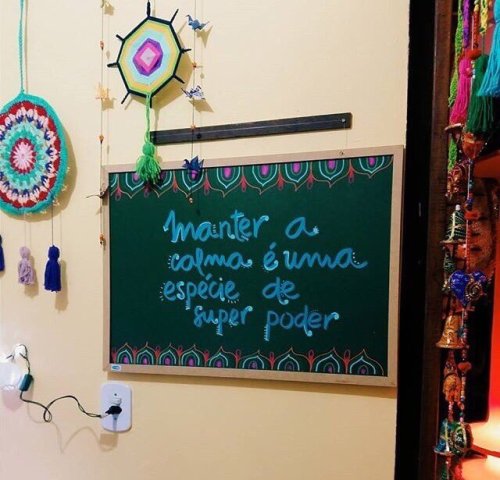 manter a
calma é uma
espécie de
super poder